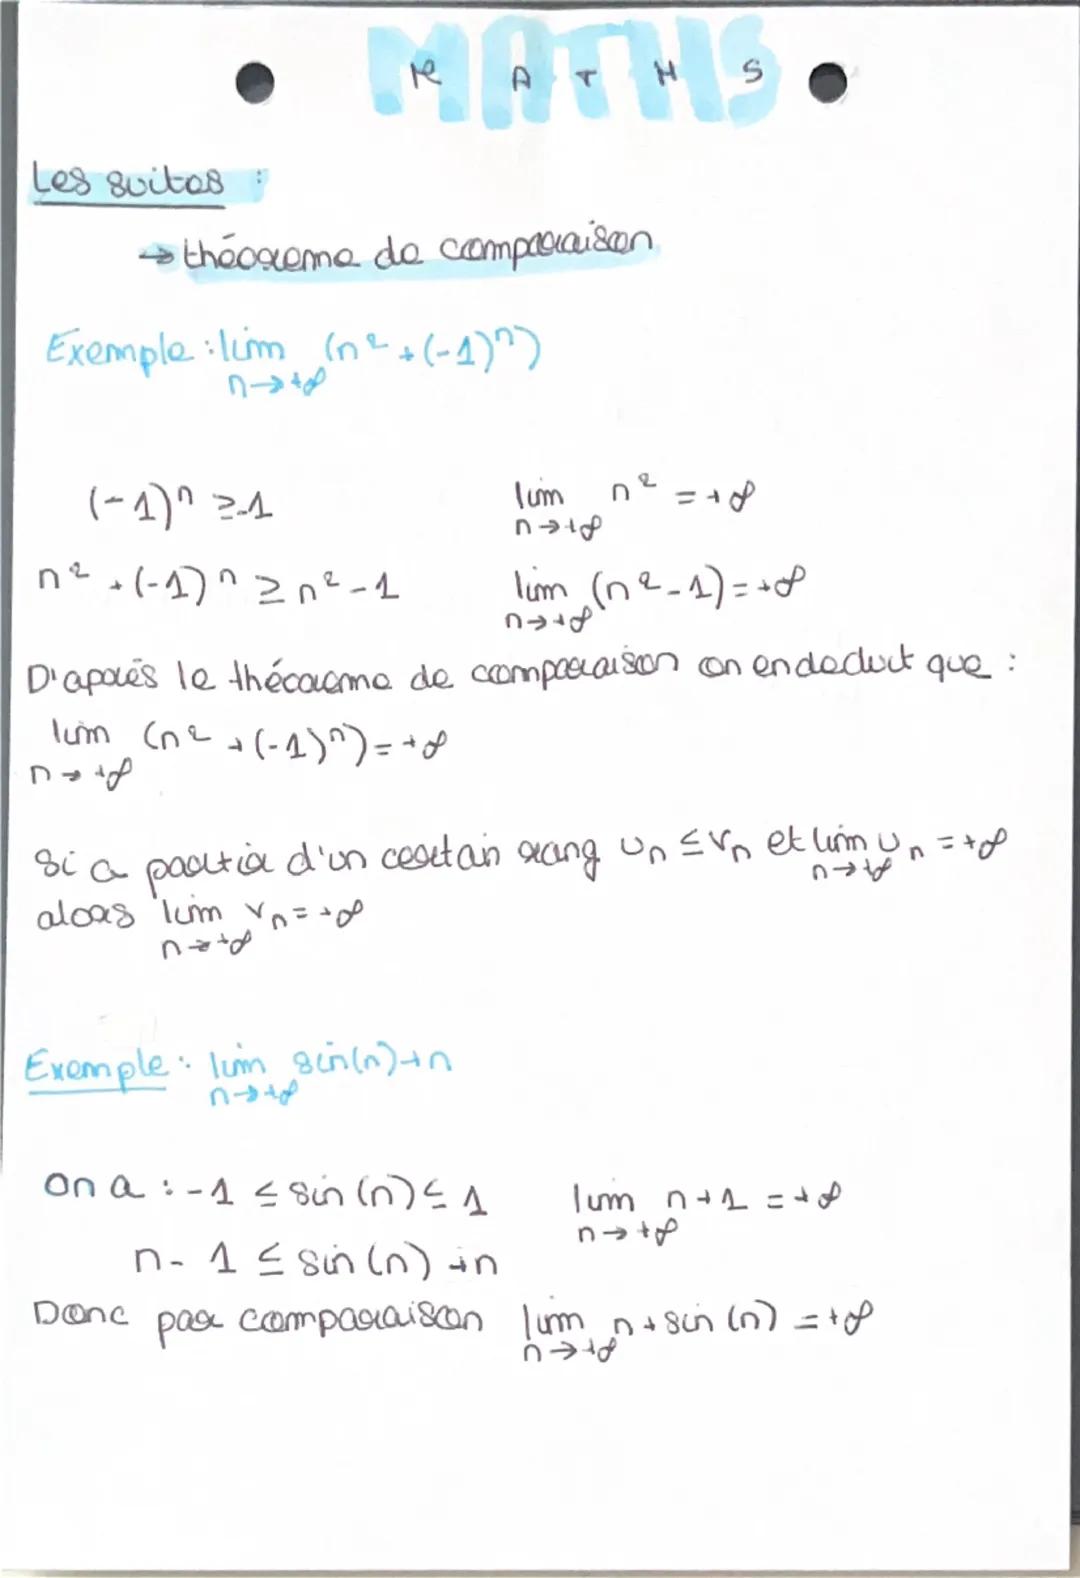 MATHS
M A T H S
Les suites :
→ théoreme de comparaison
Exemple : lim (n² + (-1)ⁿ)
n→+∞
(-1)ⁿ ≥ -1
lim n² = +∞
n→+∞
n² + (-1)ⁿ ≥ n² - 1
lim (n² - 1) = +∞
n→+∞
D'aprés le théoreme de comparaison on en deduit que :
lim (n² + (-1)ⁿ) = +∞
n→ +∞
Si a partir d'un certain rang un ≤ vn et lim un = +∞
n→+∞
alors lim vn = +∞
n→+∞
Exemple : lim sin(n)+n
n→+∞
On a : -1 ≤ sin(n) ≤ 1
lim n+1 = +∞
n→+∞
n- 1 ≤ sin(n) +n
Donc par comparaison lim n + sin(n) = +∞
n→+∞